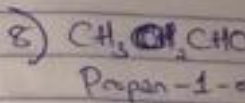 8) CH₃CH₂CHO
Propan-1-